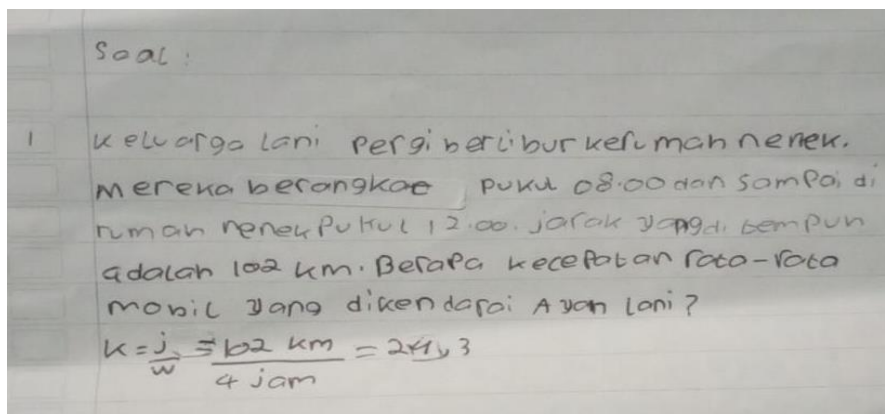 Soal :
1 Keluarga lani pergi berlibur kerumah nenek.
mereka berangkat pukul 08.00 dan sampai di
rumah nenek pukul 12.00. jarak yang di tempuh
adalah 102 km. Berapa kecepatan rata-rata
mobil yang dikendarai Ayah lani?
K = j/w = 102 km / 4 jam = 24,3